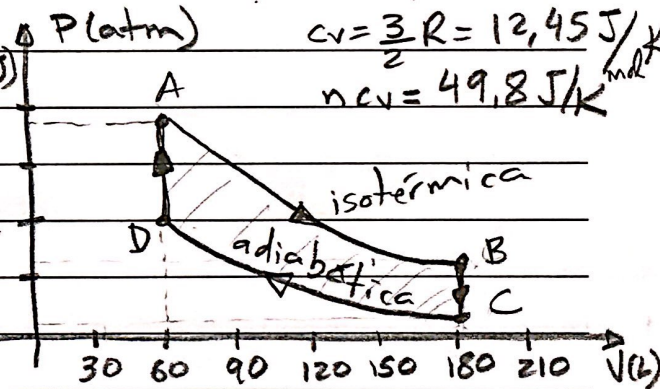 P(atm)
cv = 3/2 R = 12,45 J/mol K
J)
n cv = 49,8 J/K
A
isotérmica
D
adiabática
B
C
30 60 90 120 150 180 210 V(L)